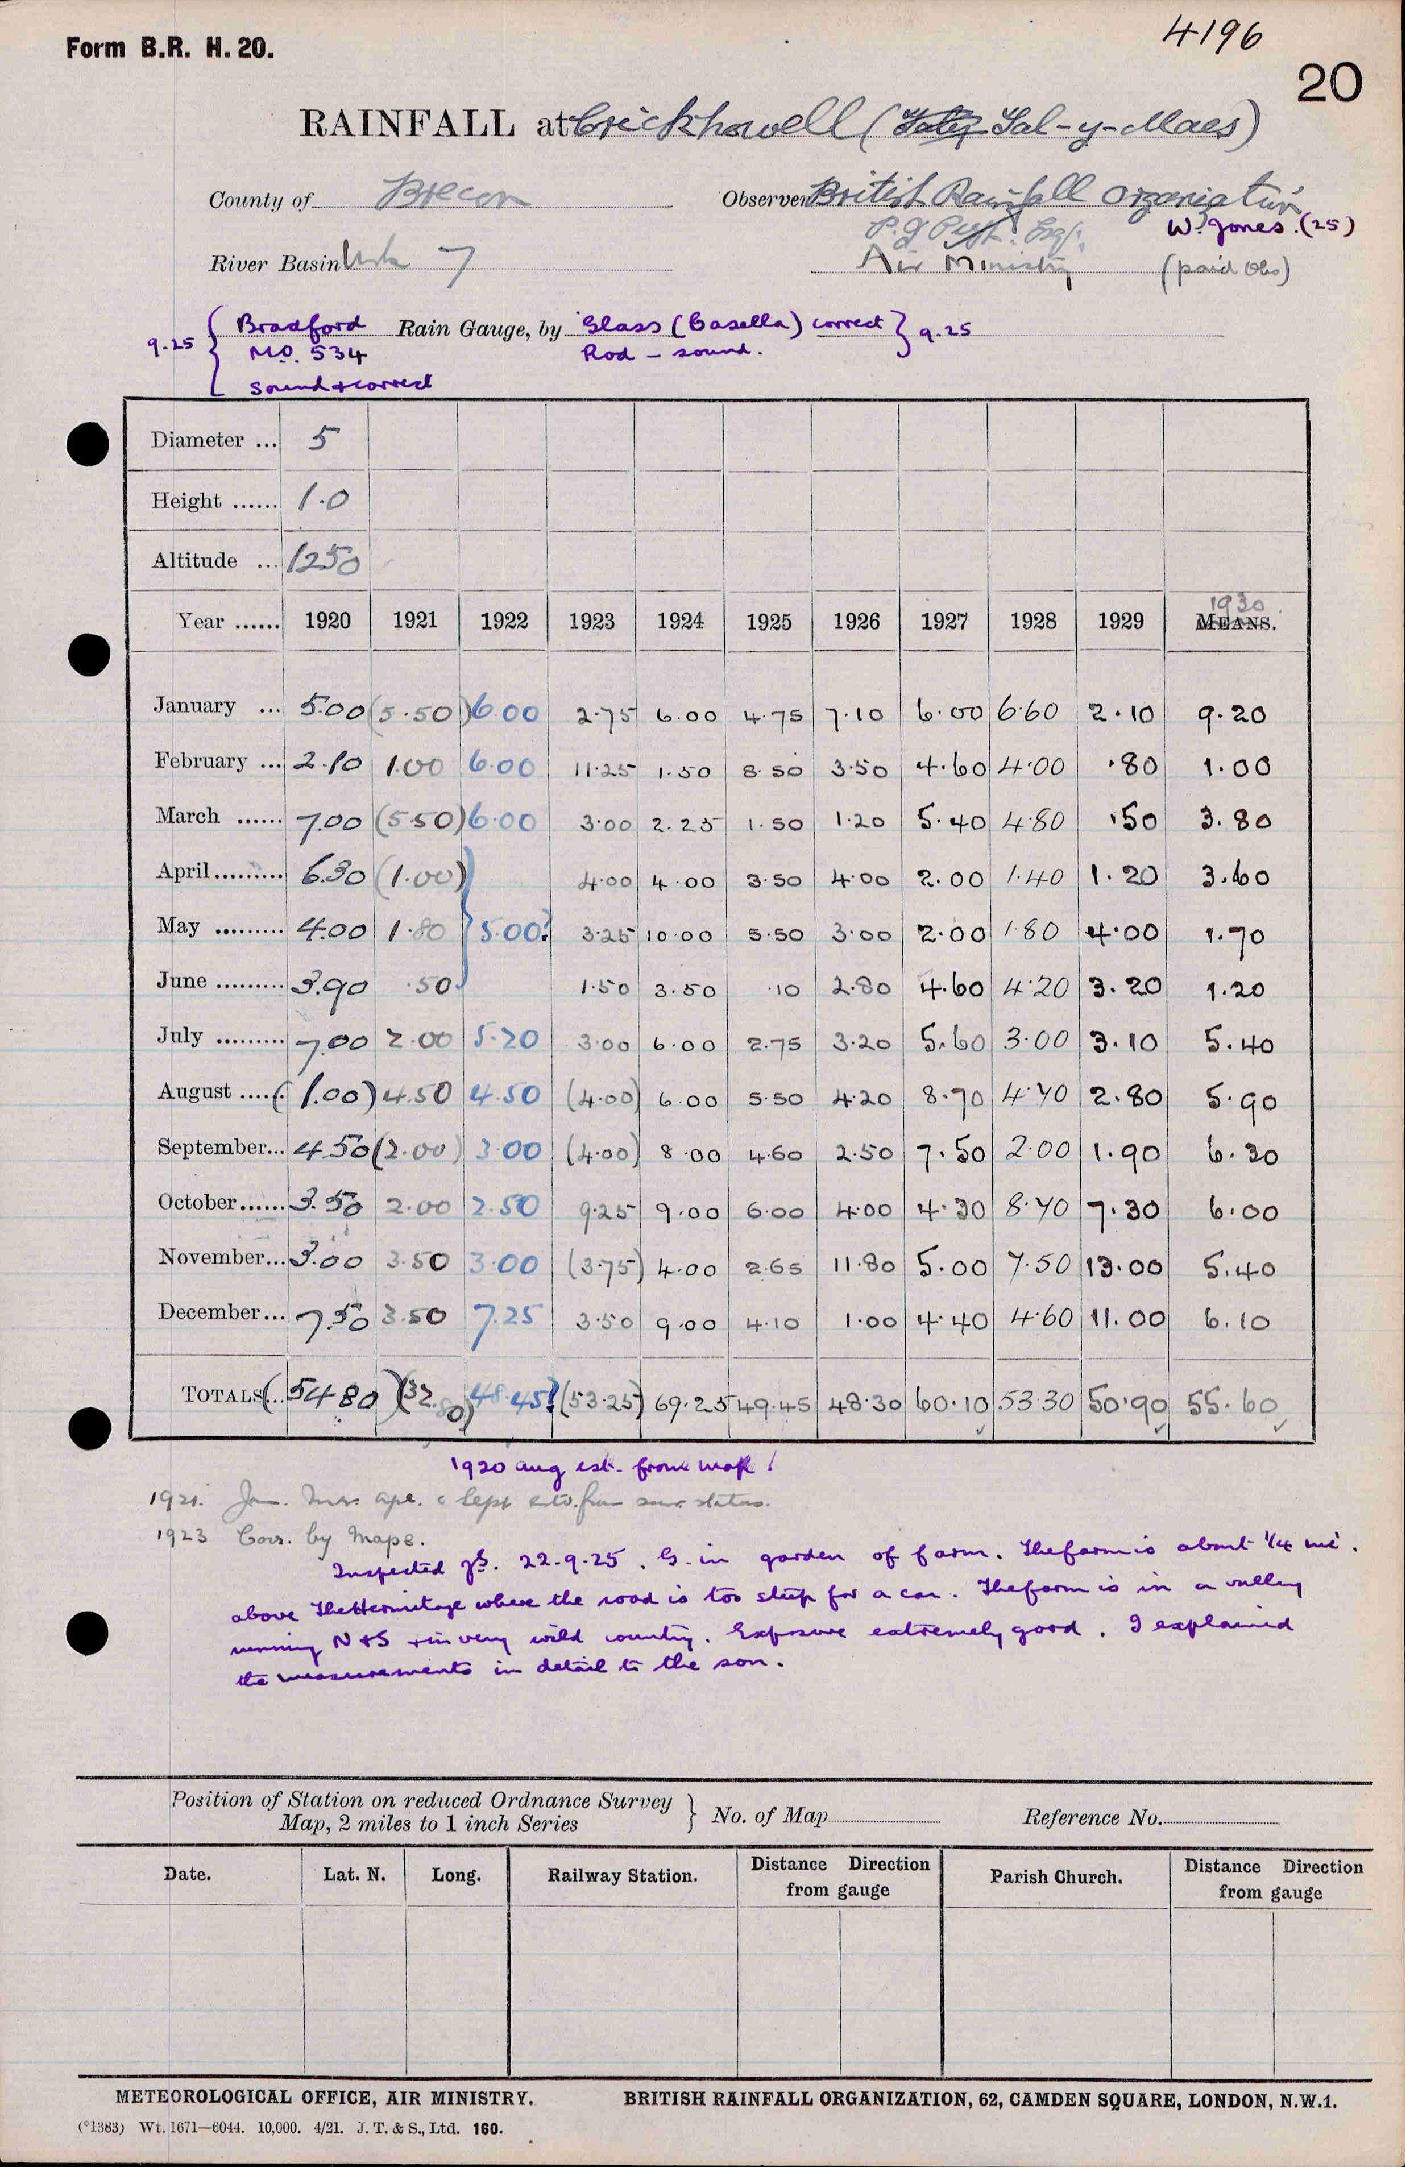 4196
Form B.R. H. 20.
20
RAINFALL at Crickhowell (Tal-y-Maes)
County of Brecon Observer British Rainfall Organisation
W. Jones. (25)
River Basin Usk 7 Air Ministry (paid Obs)
9.25 { Bradford Rain Gauge, by Glass (Casella) correct } 9.25
M.O. 534 Rod - sound.
Sound & correct
Diameter ... 5
Height ...... 1.0
Altitude ... 1250
1930
Year ...... 1920 1921 1922 1923 1924 1925 1926 1927 1928 1929 MEANS.
January ... 5.00 (5.50) 6.00 2.75 6.00 4.75 7.10 6.00 6.60 2.10 9.20
February ... 2.10 1.00 6.00 11.25 1.50 8.50 3.50 4.60 4.00 .80 1.00
March ...... 7.00 (5.50) 6.00 3.00 2.25 1.50 1.20 5.40 4.80 .50 3.80
April......... 6.30 (1.00) 4.00 4.00 3.50 4.00 2.00 1.40 1.20 3.60
May ......... 4.00 1.80 } 5.00? 3.25 10.00 5.50 3.00 2.00 1.80 4.00 1.70
June ......... 3.90 .50 1.50 3.50 .10 2.80 4.60 4.20 3.20 1.20
July ......... 7.00 2.00 5.20 3.00 6.00 2.75 3.20 5.60 3.00 3.10 5.40
August ..... (1.00) 4.50 4.50 (4.00) 6.00 5.50 4.20 8.70 4.70 2.80 5.90
September... 4.50 (2.00) 3.00 (4.00) 8.00 4.60 2.50 7.50 2.00 1.90 6.30
October...... 3.50 2.00 2.50 9.25 9.00 6.00 4.00 4.30 8.70 7.30 6.00
November... 3.00 3.50 3.00 (3.75) 4.00 2.65 11.80 5.00 7.50 13.00 5.40
December... 7.50 3.50 7.25 3.50 9.00 4.10 1.00 4.40 4.60 11.00 6.10
TOTALS... (54.80) (32.80) 48.45? (53.25) 69.25 49.45 48.30 60.10 53.30 50.90 55.60
1920 aug est. from map!
1921. Jan. Mar. Apl. & Sept estd. from surr. statns.
1923 Corr. by Maps.
Inspected 22-9-25. G. in garden of farm. The farm is about ¼ ml.
above The Hermitage where the road is too steep for a car. The farm is in a valley
running N & S & in very wild country. Exposure extremely good. I explained
the measurements in detail to the son.
Position of Station on reduced Ordnance Survey
Map, 2 miles to 1 inch Series } No. of Map Reference No.
Date. Lat. N. Long. Railway Station. Distance Direction from gauge Parish Church. Distance Direction from gauge
METEOROLOGICAL OFFICE, AIR MINISTRY. BRITISH RAINFALL ORGANIZATION, 62, CAMDEN SQUARE, LONDON, N.W.1.
(*1383) Wt. 1671—6044. 10,000. 4/21. J. T. & S., Ltd. 160.